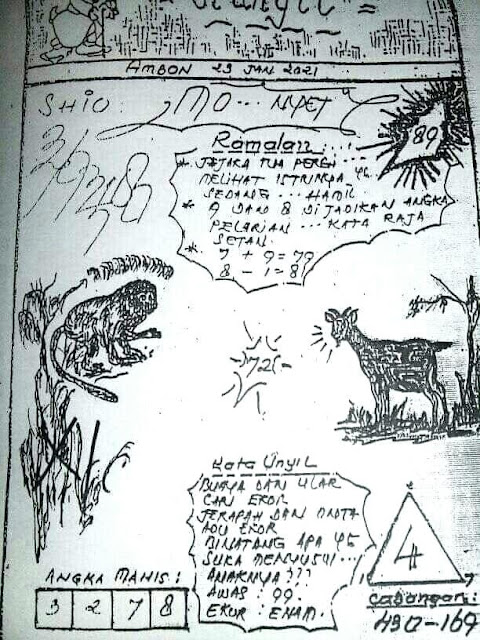 AMBON 23 JAN 2021
SHIO: MO... NYET
89
Ramalan:
* JEJAKA TUA PERGI
MELIHAT ISTRINYA YG
SEDANG ... HAMIL
* 9 DAN 8 DIJADIKAN ANGKA
PELARIAN ... KATA RAJA
SETAN.
* 7 + 9 = 79
8 - 1 = 81
72
Kata Unyil
BUAYA DAN ULAR
CARI EKOR
JERAPAH DAN ONTA
ADU EKOR
BINATANG APA YG
SUKA MENYUSUI ...
ANAKNYA???
AWAS: 99.
EKOR: ENAM.
4
7
ANGKA MANIS:
3 2 7 8
Cadangan:
430-169